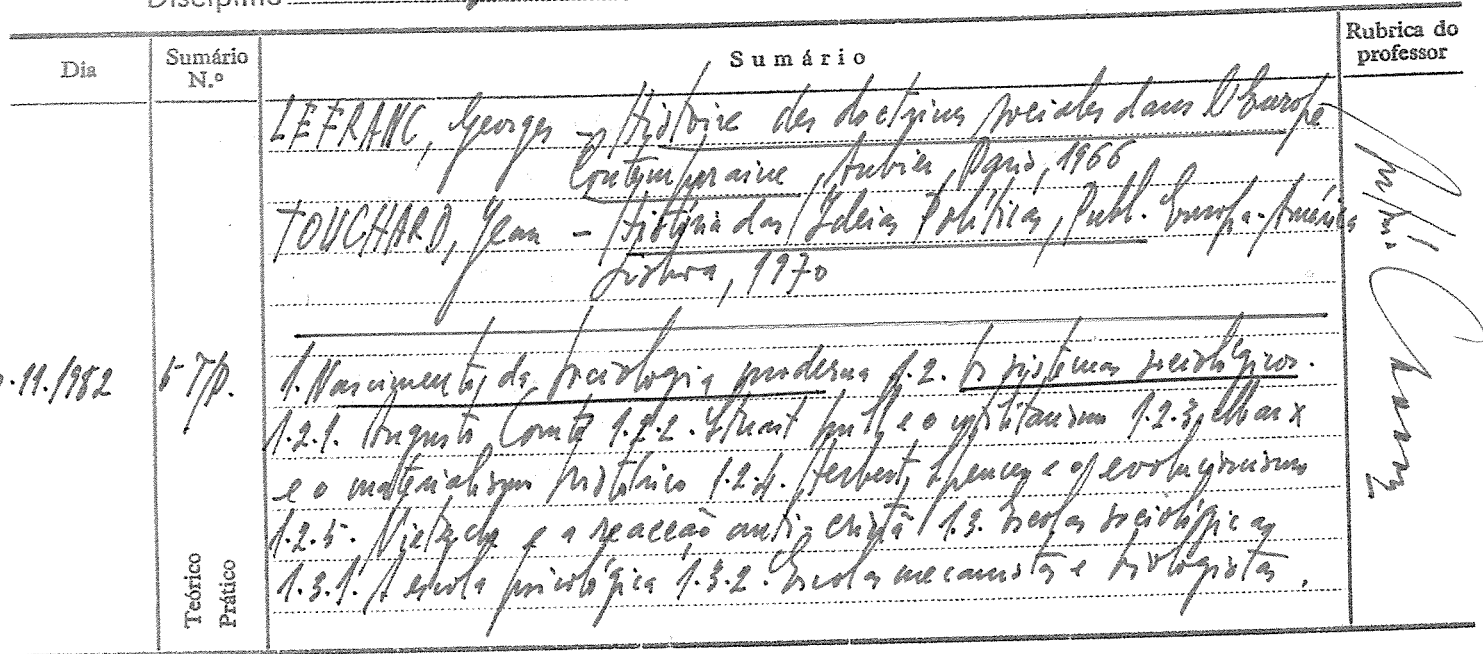 Disciplina
Dia
Sumário N.º
Sumário
Rubrica do professor
LEFRANC, Georges - Histoire des doctrines sociales dans l'Europe
Contemporaine, Aubier, Paris, 1966
TOUCHARD, Jean - História das Ideias Políticas, Publ. Europa-América
Lisboa, 1970
.11.1982
5 T/P.
1. Nascimento da sociologia moderna 1.2. Os sistemas sociológicos.
1.2.1. Augusto Comte 1.2.2. Stuart Mill e o utilitarismo 1.2.3. Marx
e o materialismo histórico 1.2.4. Herbert Spencer e o evolucionismo
1.2.5. Nietzsche e a reacção anti-cristã 1.3. Escolas sociológicas
1.3.1. A escola psicológica 1.3.2. Escolas mecanistas e biologistas.
Teórico
Prático